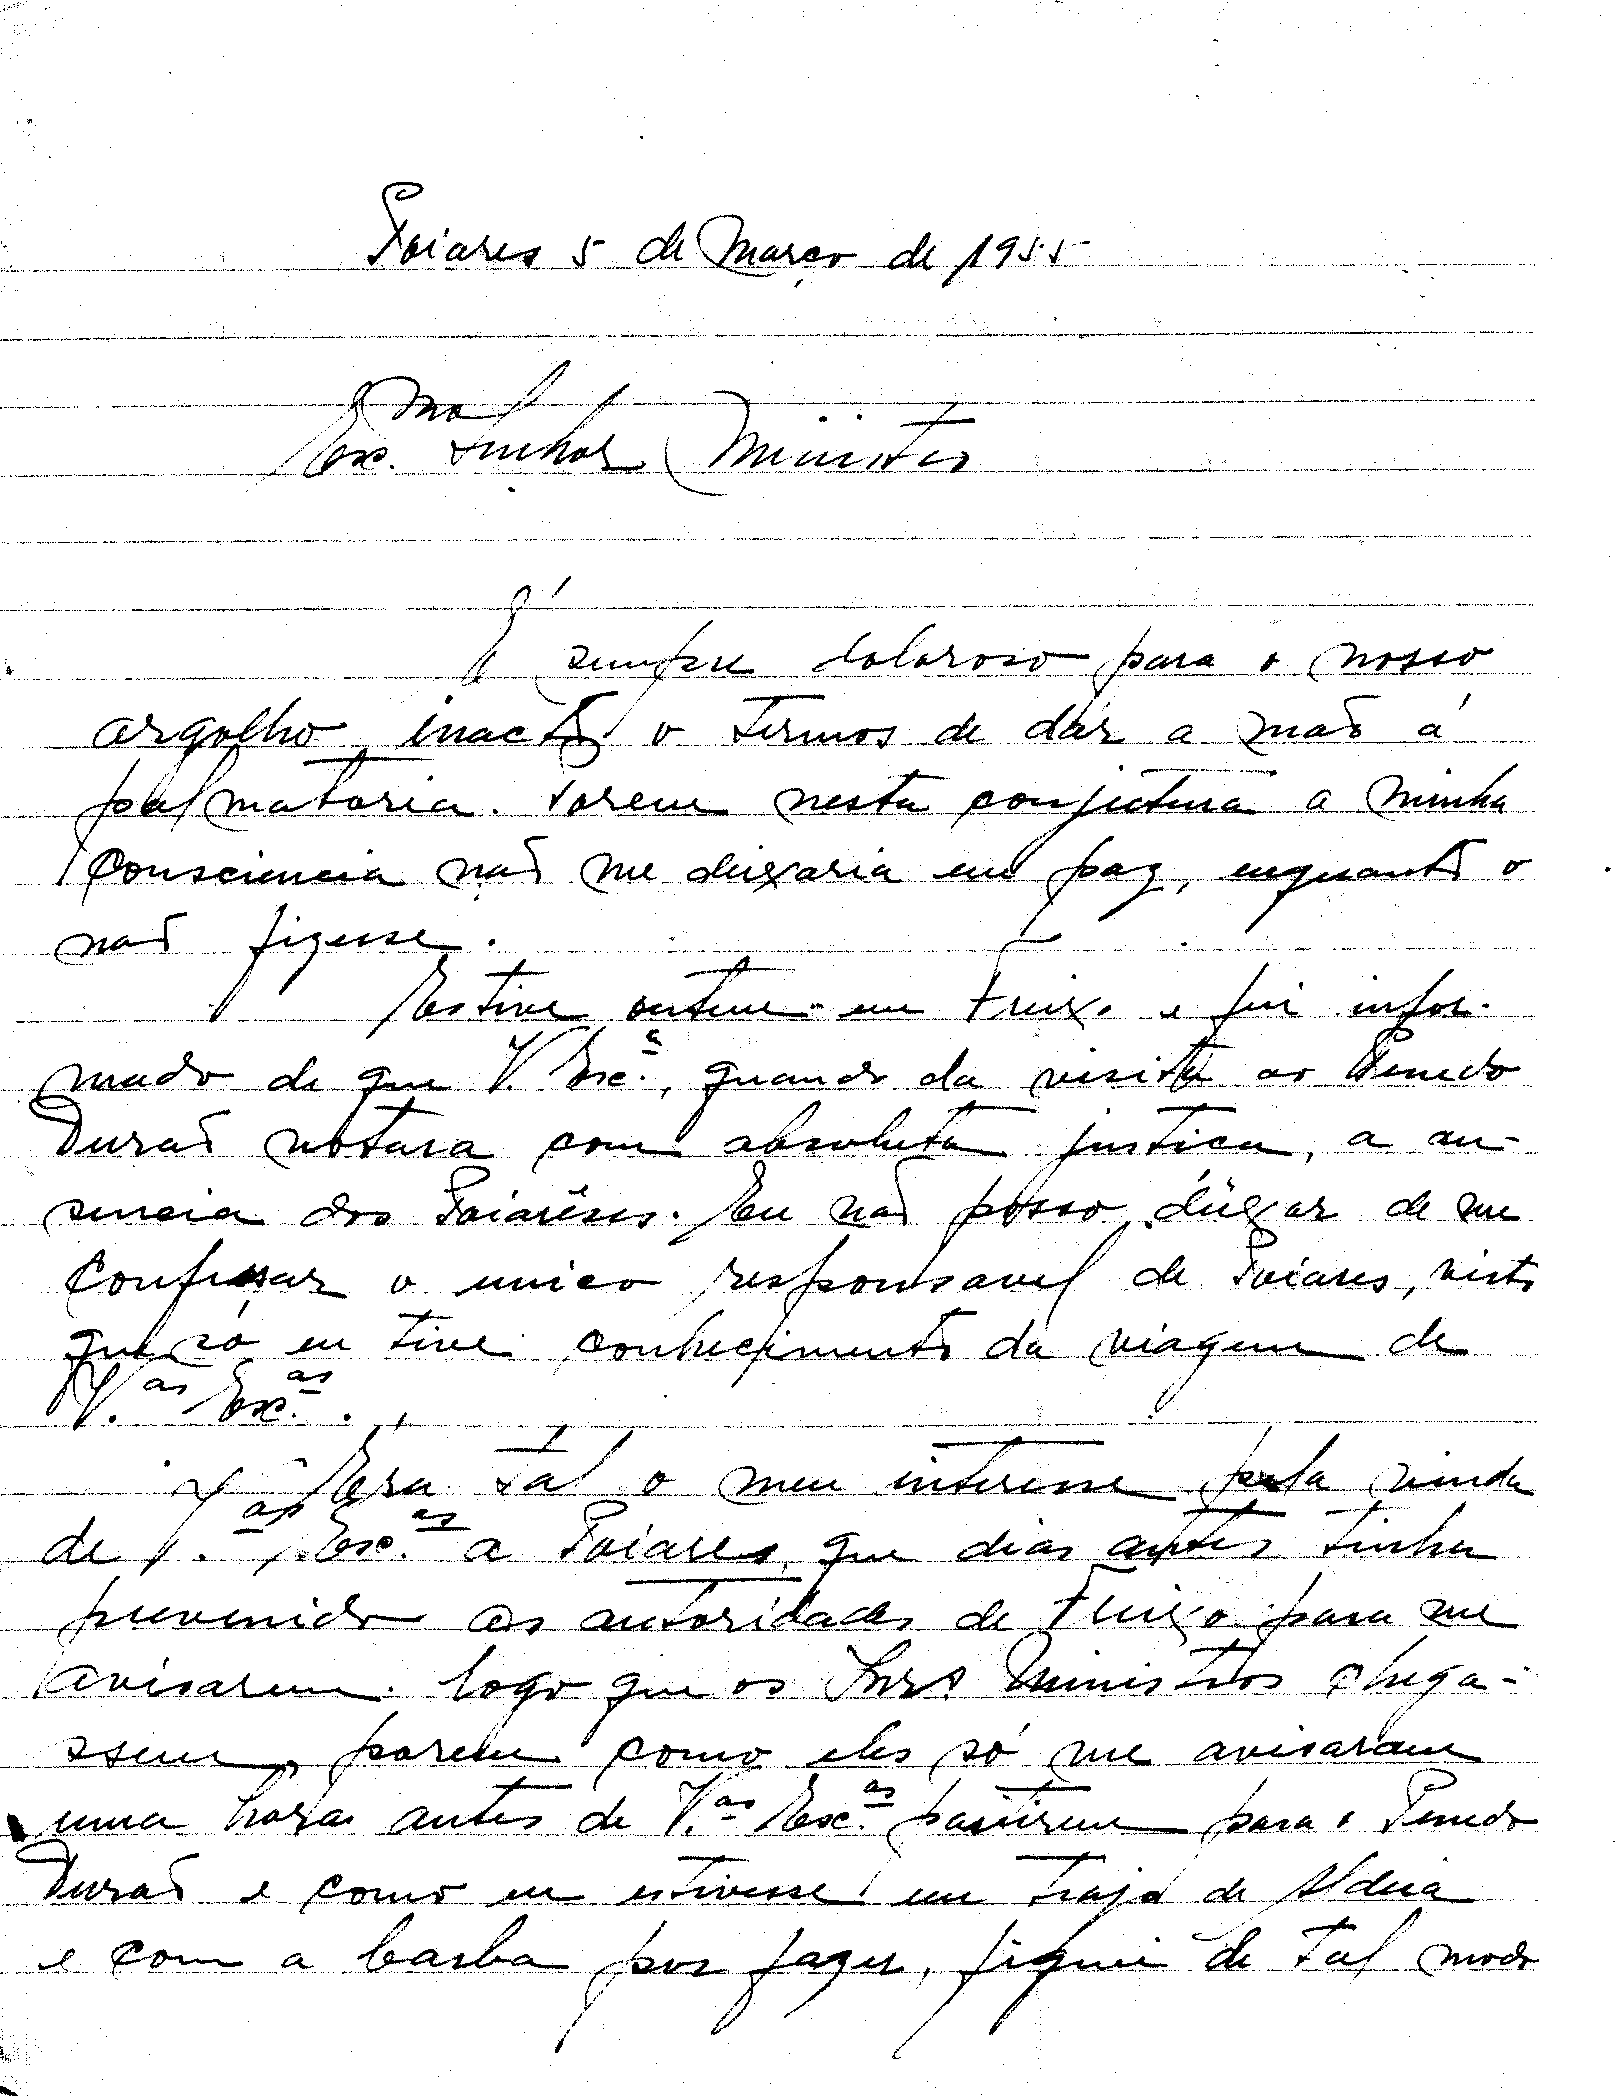 Poiares 5 de Março de 1955
Exmo. Senhor Ministro
É sempre doloroso para o nosso
orgolho inacto o termos de dár a mão á
palmatoria. Porem nesta conjuctura a minha
consciencia não me deixaria em paz, enquanto o
não fizesse.
Estive ontem em Freixo e fui infor-
mado de que V. Exc.ª, quando da visita ao Penedo
Durão notara com absoluta justica, a au-
sencia dos Poiarêses. Eu não posso deixar de me
confessar o unico responsavel de Poiares, visto
que só eu tive conhecimento da viagem de
V.as Exc.as.
Era tal o meu interesse pela vinda
de V.as Exc.as a Poiares, que dias antes tinha
prevenido as autoridades de Freixo para me
avisarem logo que os Snrs Ministros chega-
ssem, porem como eles só me avisaram
uma hora antes de V.as Exc.as partirem para o Penedo
Durão e como eu estivesse em trajo de Aldeia
e com a barba por fazer, fiquei de tal modo